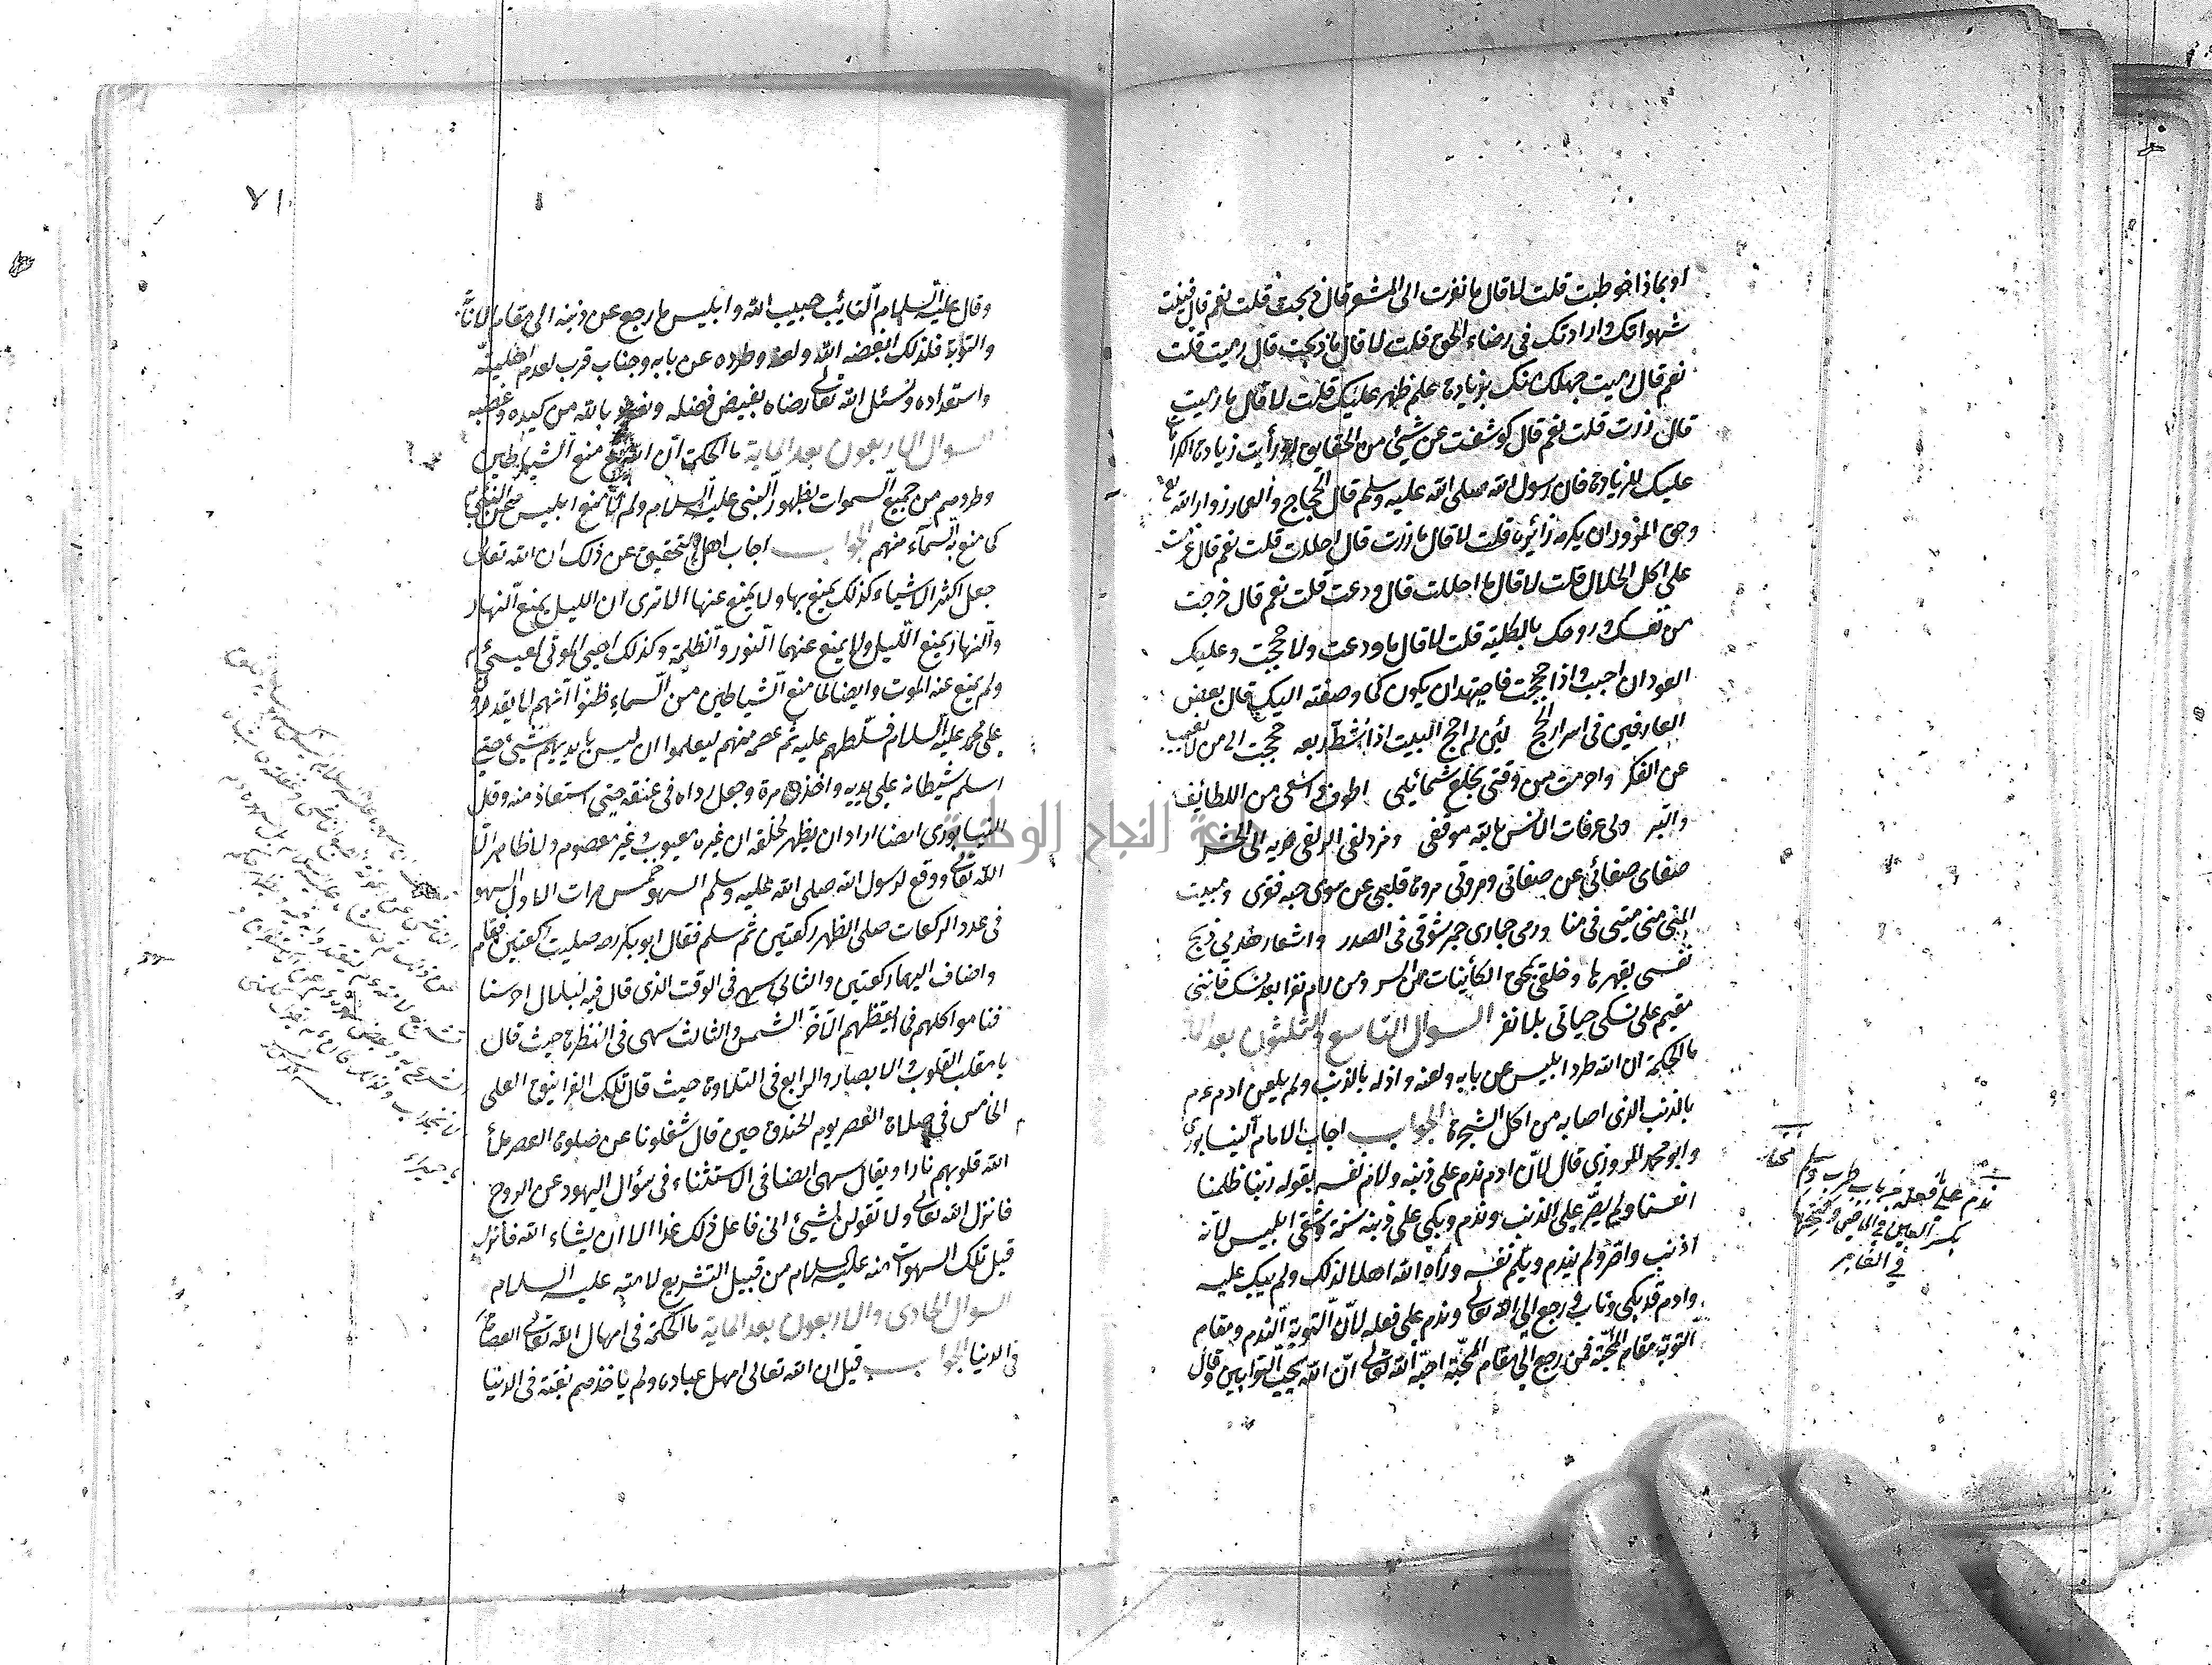 او بماذا خوطبت قلت لا قال ما نفرت الى المشعر قال ذبحت قلت نعم قال فنيت
شهواتك وارادتك فى رضاء الحق قلت لا قال ما ذبحت قال رميت قلت
نعم قال رميت جهلك منك بزيادة علم ظهر عليك قلت لا قال ما رميت
قال زرت قلت نعم قال كوشفت عن شيئ من الحقايق او رأيت زيادة الكرامة
عليك للزيادة فان رسول الله صلى الله عليه وسلم قال الحجاج والعمار زوار الله
وحق المزور ان يكرم زائره قلت لا قال ما زرت قال احللت قلت نعم قال عزمت
على اكل الحلال قلت لا قال ما احللت قال ودعت قلت نعم قال خرجت
من نفسك وروحك بالكلية قلت لا قال ما ودعت ولا حججت وعليك
العود ان احببت واذا حججت فاجتهد ان يكون كما وصفته اليك قال بعض
العارفين فى اسرار الحج لئن لم احج البيت اذ شط ربعه حججت الى من لا يغيب
عن الفكر واحرمت من وقتى بخلع شمائلى اطوف واسعى من اللطائف
والبر ولى عرفات الانس بالله موقفى ومزدلفى الزلفى لديه الى الحشر
صفاى صفائى عن صفاتى ومروتى مروة قلبى عن سوى حبه فقرى ومبيت
المنى منى مبيتى فى منا ورمى جمارى جمر شوقى فى الصدر واشعار هديى ذبح
نفسى بقهرها وحلقى بمحق الكائنات عن السر ومن رام نفرا بعد نسك فاننى
مقيم على نسكى حياتى بلا نفر السوال التاسع والثلثون بعد الماية
ما الحكمة ان الله طرد ابليس عن بابه ولعنه واذله بالذنب ولم يلعن ادم ع م
بالذنب الذى اصابه من اكل الشجرة الجواب اجاب الامام النيسابورى
وابو محمد المروزى قال لان ادم ندم على ذنبه ولام نفسه بقوله ربنا ظلمنا
انفسنا ولم يصر على الذنب وندم وبكى على ذنبه سنة وشقى ابليس لانه
اذنب واصر ولم يندم ويلم نفسه وراه الله اهلا لذلك ولم يبك عليه
وادم قد بكى وتاب ورجع الى الله تعالى وندم على فعله لان التوبة الندم ومقام
التوبة مقام المحبة فمن رجع الى مقام المحبة احبه الله تعالى ان الله يحب التوابين وقال
ندم على فعله من باب طرب وسلم مختار
بكسر العين فى الماضى وفتحها
فى الغابر
٧١
وقال عليه السلام التائب حبيب الله وابليس ما رجع عن ذنبه الى مقام الانابة
والتوبة فلذلك ابغضه الله ولعنه وطرده عن بابه وجناب قرب لعدم اهليته
واستعداده ونسئل الله تعالى رضاه بفيض فضله ونعوذ بالله من كيده وغضبه
السوال الاربعون بعد الماية ما الحكمة ان الله تع منع الشياطين
وطردهم من جميع السموات بظهور النبى عليه السلام ولم منع ابليس عن النبى ع م
كما منع السماء منهم الجواب اجاب اهل التحقيق عن ذلك ان الله تعالى
جعل اكثر الاشياء كذلك يمنع بها ولا يمنع عنها الا ترى ان الليل يمنع النهار
والنهار يمنع الليل ولا يمنع عنهما النور والظلمة وكذلك احيى الموتى لعيسى ع م
ولم يمنع عنه الموت وايضا لما منع الشياطين من السماء ظنوا انهم لا يقدروا
على محمد عليه السلام فسلطهم عليه ثم عصمه منهم ليعلموا ان ليس بايديهم شيئ حتى
اسلم شيطانه على يديه واخذه مرة وجعل رداه فى عنقه حتى استعاذ منه وقال
النيسابورى ايضا اراد ان يظهر لخلقه ان غيره معيوب غير معصوم ولا ظاهر الا
الله تعالى ووقع لرسول الله صلى الله عليه وسلم السهو خمس مرات الاول السهو
فى عدد الركعات صلى الظهر ركعتين ثم سلم فقال ابو بكر رضه صليت ركعتين فقام
واضاف اليهما ركعتين والثانى سهى فى الوقت الذى قال فيه لبلال احرسنا
فناموا كلهم فما ايقظهم الا حر الشمس والثالث سهى فى النظرة حيث قال
يا مقلب القلوب والابصار والرابع فى التلاوة حيث قال تلك الغرانيق العلى
الخامس فى صلاة العصر يوم الخندق حين قال شغلونا عن صلوة العصر ملأ
الله قلوبهم نارا ويقال سهى ايضا فى الاستثناء فى سؤال اليهود عن الروح
فانزل الله تعالى ولا تقولن لشيئ انى فاعل ذلك غدا الا ان يشاء الله فانزل
قبل تلك السهوات منه عليه السلام من قبيل التشريع لامته عليه السلام
السوال الحادى والاربعون بعد الماية ما الحكمة فى امهال الله تعالى العصاة
فى الدنيا الجواب قيل ان الله تعالى امهل عباده ولم ياخذهم بغتة فى الدنيا
جامعة النجاح الوطنية